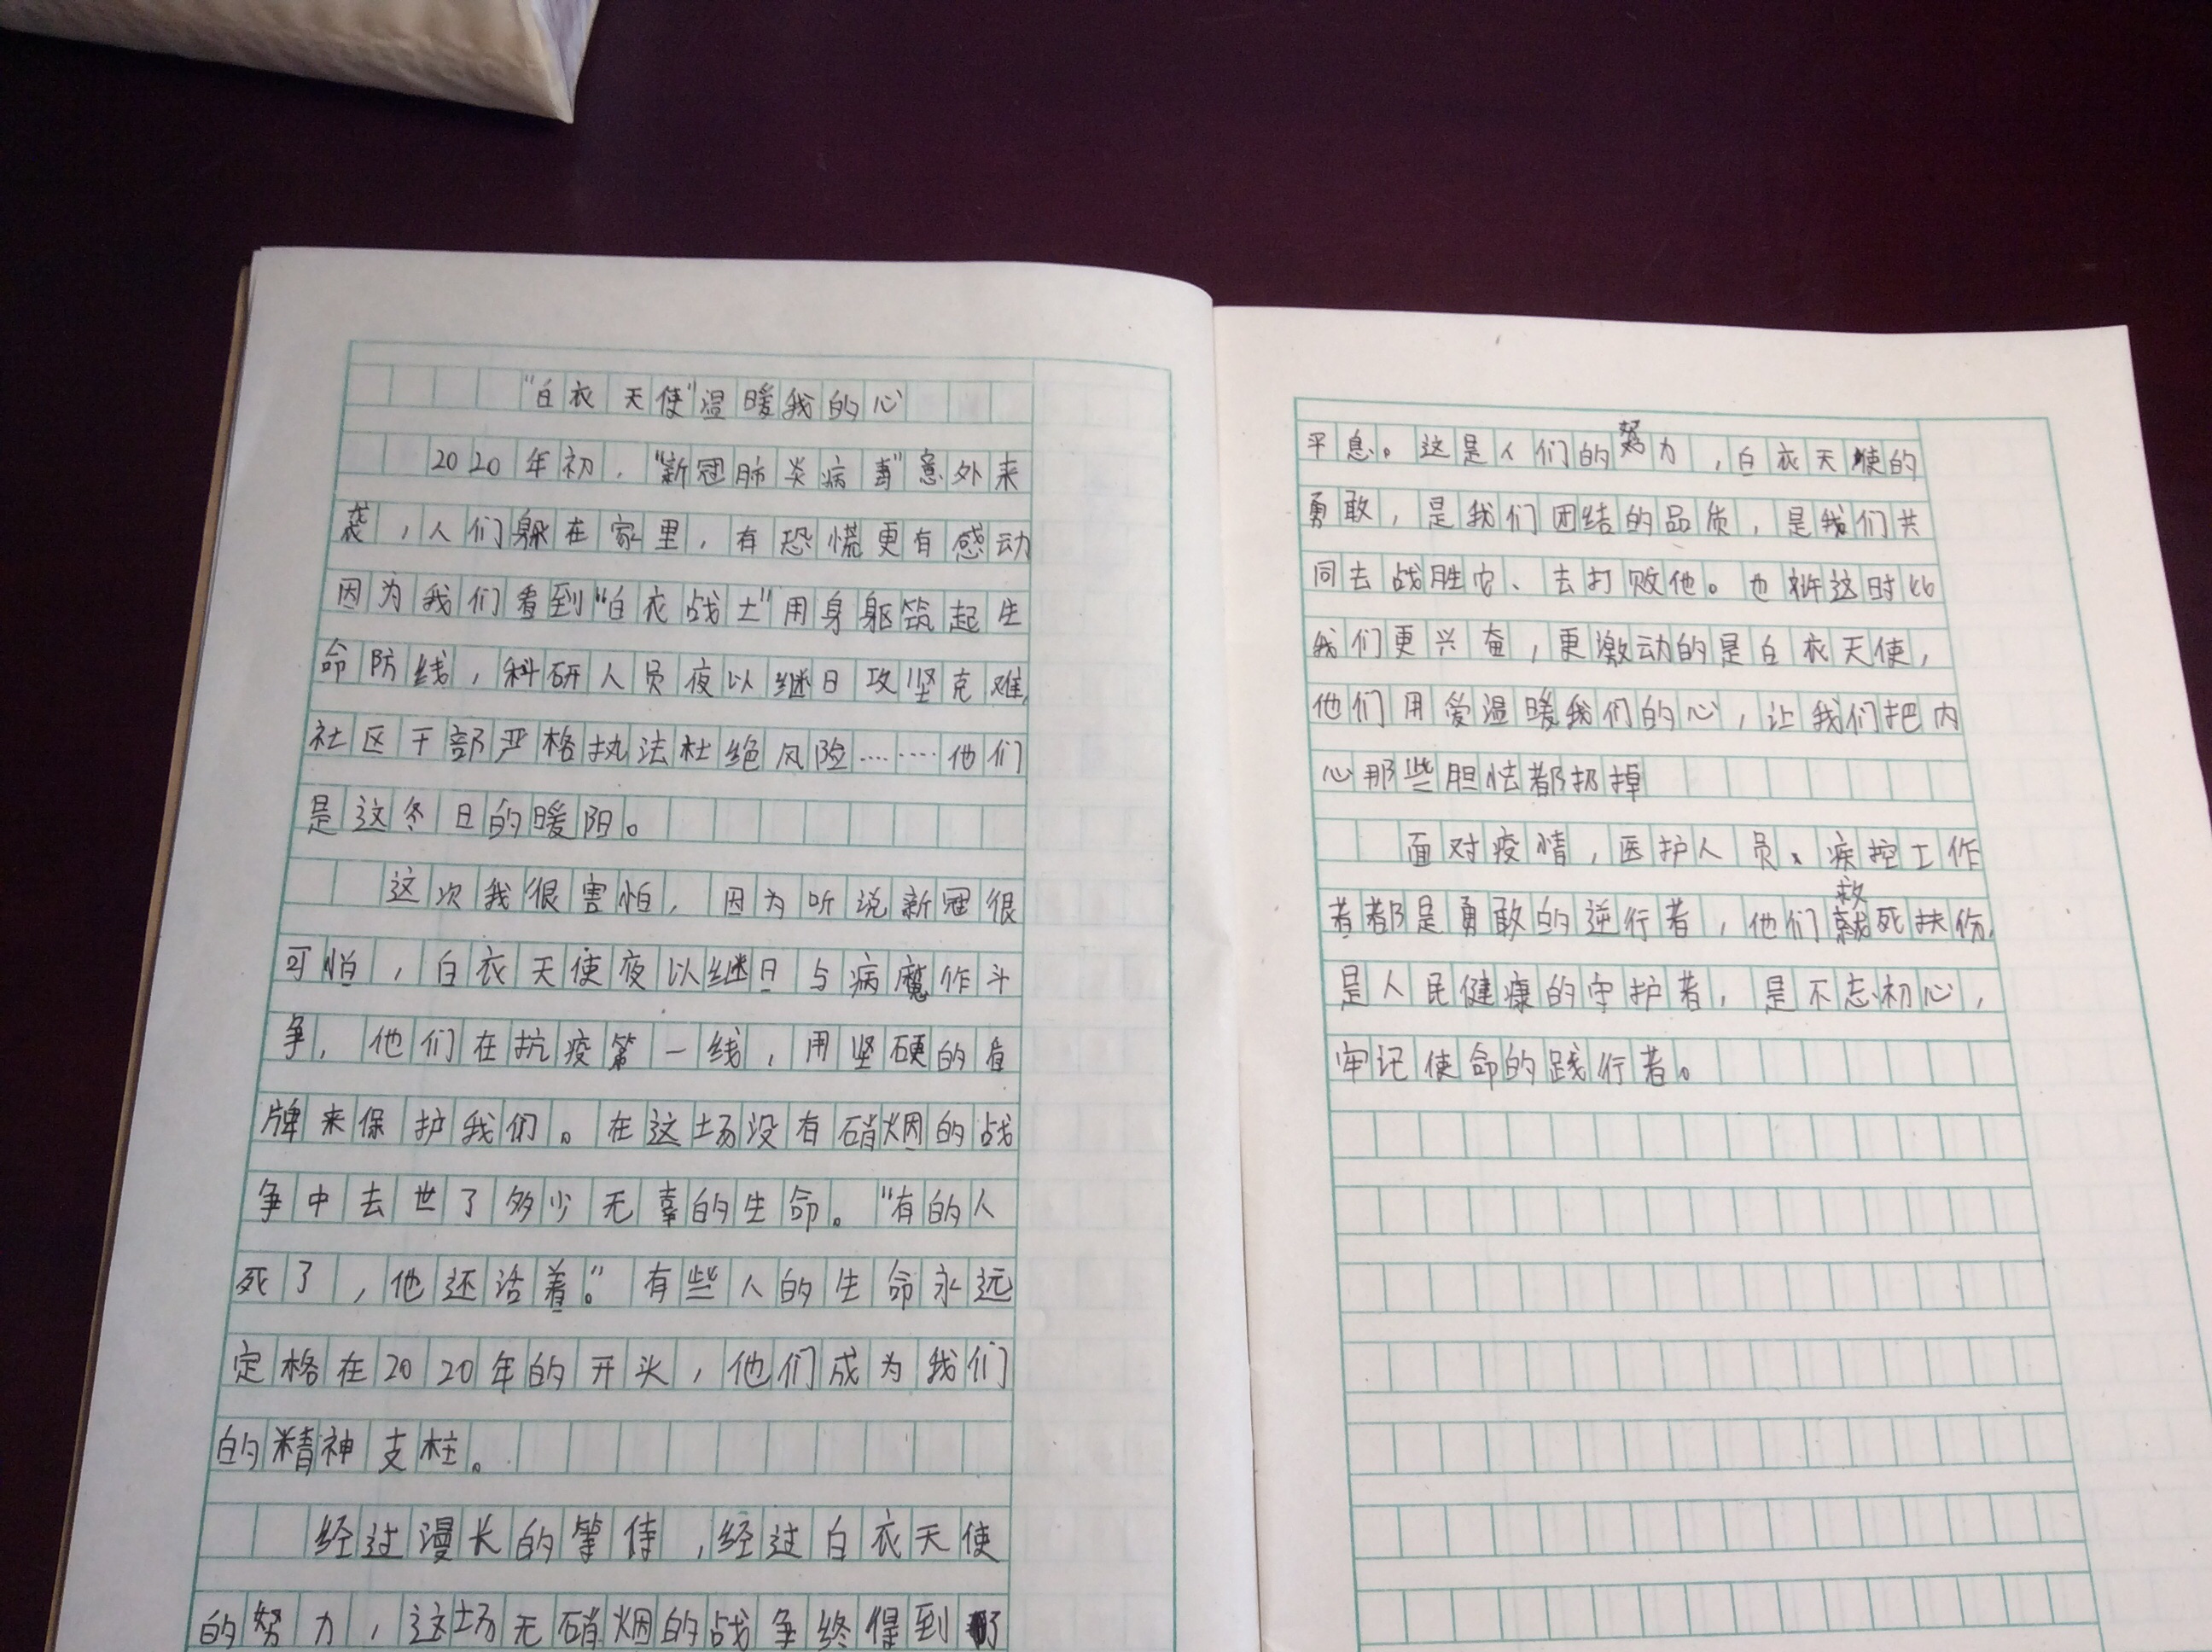 “白衣天使”温暖我的心
2020年初，“新冠肺炎病毒”意外来
袭，人们躲在家里，有恐慌更有感动
因为我们看到“白衣战士”用身躯筑起生
命防线，科研人员夜以继日攻坚克难，
社区干部严格执法杜绝风险……他们
是这冬日的暖阳。
这次我很害怕，因为听说新冠很
可怕，白衣天使夜以继日与病魔作斗
争，他们在抗疫第一线，用坚硬的盾
牌来保护我们。在这场没有硝烟的战
争中去世了多少无辜的生命。“有的人
死了，他还活着。”有些人的生命永远
定格在2020年的开头，他们成为我们
的精神支柱。
经过漫长的等待，经过白衣天使
的努力，这场无硝烟的战争终得到了
平息。这是人们的努力，白衣天使的
勇敢，是我们团结的品质，是我们共
同去战胜它、去打败他。也许这时比
我们更兴奋，更激动的是白衣天使，
他们用爱温暖我们的心，让我们把内
心那些胆怯都扔掉
面对疫情，医护人员、疾控工作
者都是勇敢的逆行者，他们救死扶伤，
是人民健康的守护者，是不忘初心，
牢记使命的践行者。